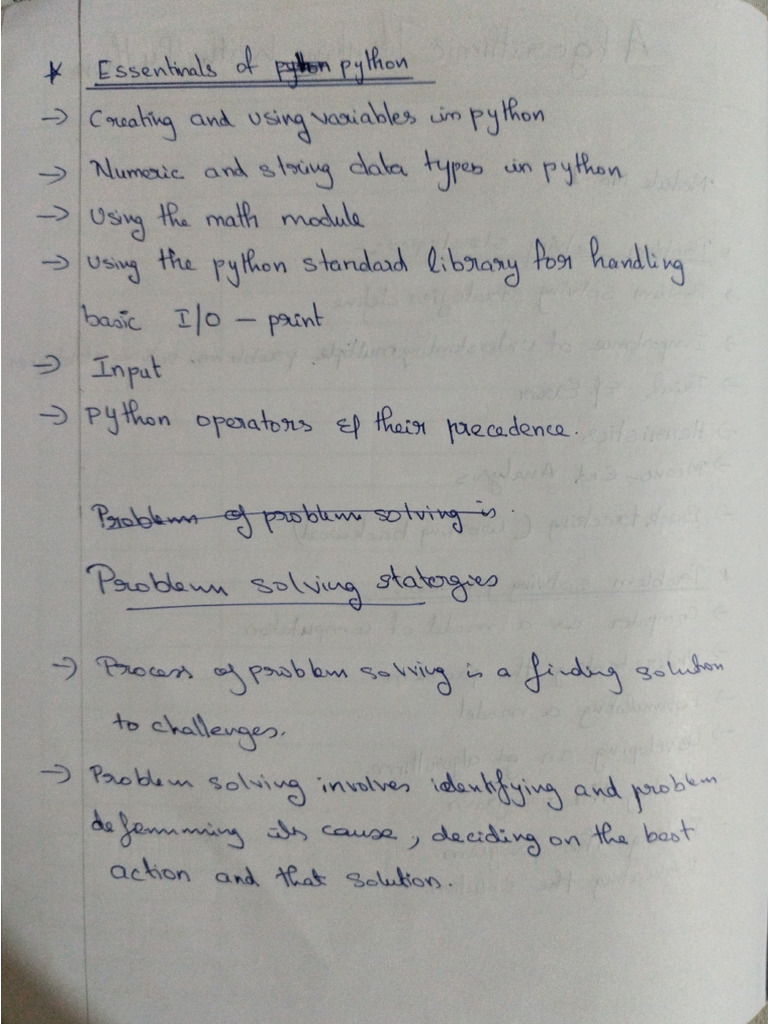 * Essentinals of python python
→ Creating and using variables in python
→ Numeric and string data types in python
→ Using the math module
→ using the python standard library for handling
basic I/O - print
→ Input
→ python operators & their precedence.
Problem of problem solving is
Problem solving statergies
→ Process of problem solving is a finding solution
to challenges.
→ Problem solving involves identifying and problem
its cause, deciding on the best
action and that solution.